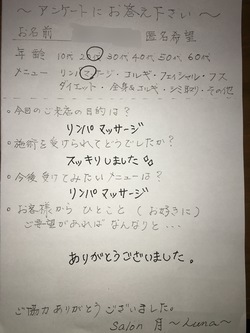 ～アンケートにお答え下さい～
お名前 匿名希望
年齢 10代 20代 30代 40代 50代 60代
メニュー リンパマッサージ・コルギ・フェイシャル・フス
ダイエット・全身&コルギ・シミ取り・その他
○今日のご来店の目的は？
リンパマッサージ
○施術を受けられてどうでしたか？
スッキリしました
○今後受けてみたいメニューは？
リンパマッサージ
○お客様から ひとこと（お好きに）
ご要望があれば なんなりと…
ありがとうございました。
ご協力ありがとうございました。
Salon 月 ～Luna～